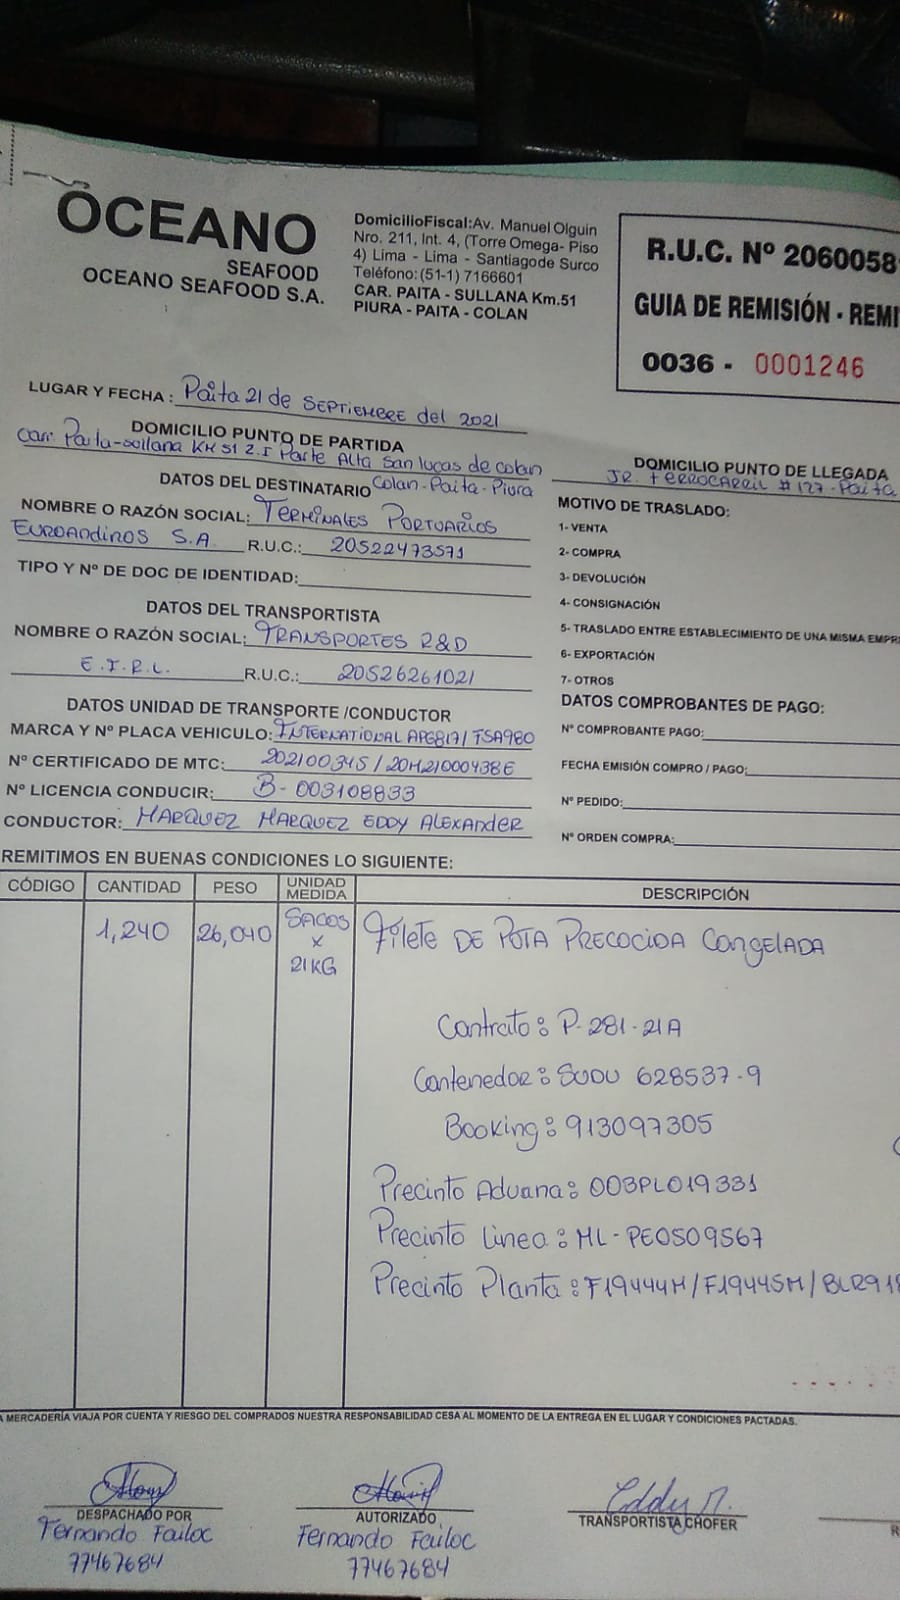 OCEANO
SEAFOOD
OCEANO SEAFOOD S.A.
DomicilioFiscal:Av. Manuel Olguin
Nro. 211, Int. 4, (Torre Omega- Piso
4) Lima - Lima - Santiagode Surco
Teléfono:(51-1) 7166601
CAR. PAITA - SULLANA Km.51
PIURA - PAITA - COLAN
R.U.C. Nº 2060058
GUIA DE REMISIÓN - REMI
0036 - 0001246
LUGAR Y FECHA: Paita 21 de SEPTIEMBRE del 2021
DOMICILIO PUNTO DE PARTIDA
Carr. Paita-sullana KM 51 Z.I Parte Alta San lucas de colan
Colan-Paita-Piura
DOMICILIO PUNTO DE LLEGADA
JR. FERROCARRIL #127-Paita
DATOS DEL DESTINATARIO
NOMBRE O RAZÓN SOCIAL: TERMINALES PORTUARIOS
EUROANDINOS S.A. R.U.C.: 20522473571
TIPO Y Nº DE DOC DE IDENTIDAD:
DATOS DEL TRANSPORTISTA
NOMBRE O RAZÓN SOCIAL: TRANSPORTES R&D
E.I.R.L. R.U.C.: 20526261021
DATOS UNIDAD DE TRANSPORTE /CONDUCTOR
MARCA Y Nº PLACA VEHICULO: INTERNATIONAL APG817/ FSA980
Nº CERTIFICADO DE MTC: 202100345/20M21000438E
Nº LICENCIA CONDUCIR: B-003108833
CONDUCTOR: MARQUEZ MARQUEZ EDDY ALEXANDER
MOTIVO DE TRASLADO:
1- VENTA
2- COMPRA
3- DEVOLUCIÓN
4- CONSIGNACIÓN
5- TRASLADO ENTRE ESTABLECIMIENTO DE UNA MISMA EMPR
6- EXPORTACIÓN
7- OTROS
DATOS COMPROBANTES DE PAGO:
Nº COMPROBANTE PAGO:
FECHA EMISIÓN COMPRO / PAGO:
Nº PEDIDO:
Nº ORDEN COMPRA:
REMITIMOS EN BUENAS CONDICIONES LO SIGUIENTE:
CÓDIGO CANTIDAD PESO UNIDAD MEDIDA DESCRIPCIÓN
1,240 26,040 SACOS x 21KG Filete DE POTA PRECOCIDA Congelada
Contrato: P-281-21A
Contenedor: SUDU 628537-9
Booking: 913097305
Precinto Aduana: 003PL019331
Precinto Linea: ML-PE0509567
Precinto Planta: F19444M/F19445M/BLR918
A MERCADERÍA VIAJA POR CUENTA Y RIESGO DEL COMPRADOS NUESTRA RESPONSABILIDAD CESA AL MOMENTO DE LA ENTREGA EN EL LUGAR Y CONDICIONES PACTADAS.
DESPACHADO POR
Fernando Failoc
77467684
AUTORIZADO
Fernando Failoc
77467684
Eddy M.
TRANSPORTISTA CHOFER
R